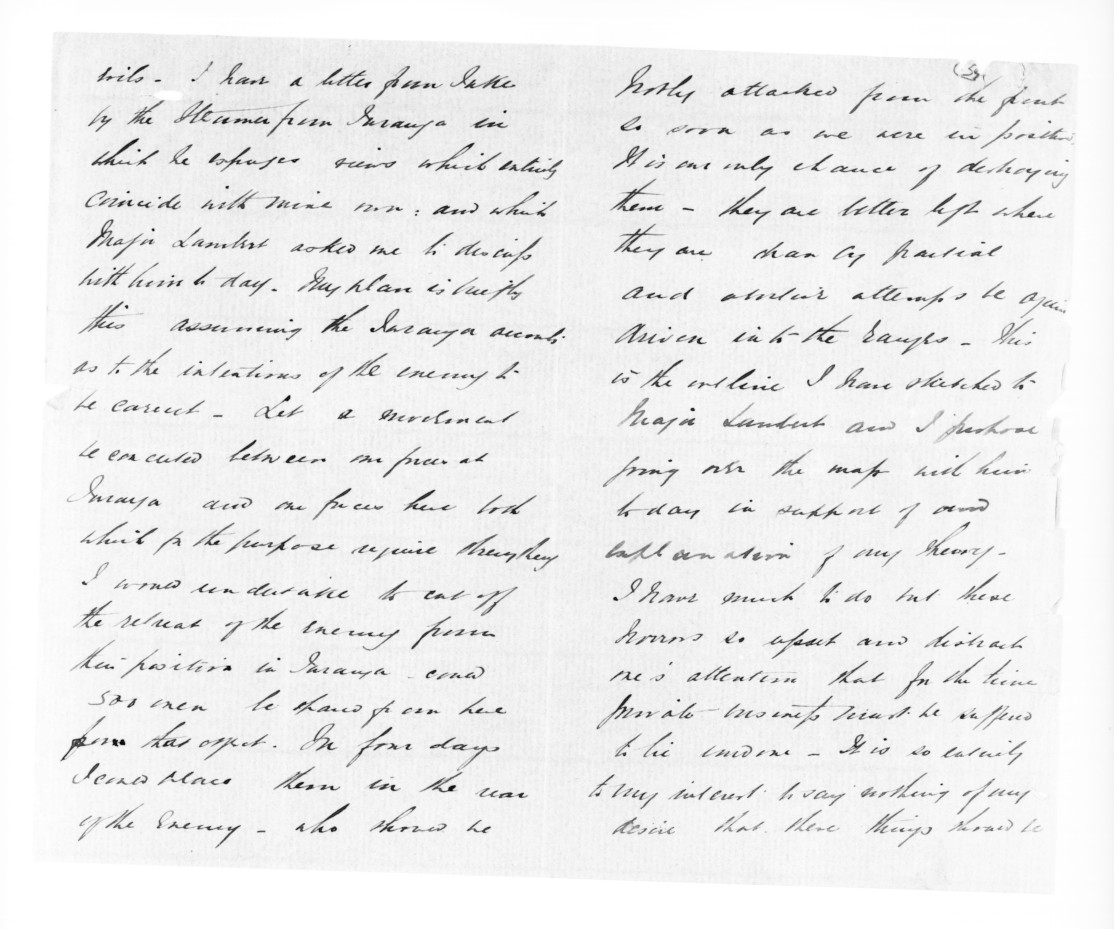 I have a letter from
by the Steamer from Turanga in
which he expresses views which entirely
coincide with mine own: and which
Major Lambert asked me to discuss
with him to day. My plan is briefly
this assuming the Turanga accounts
as to the intentions of the enemy to
be correct - Let a movement
be concerted between our forces at
Turanga and our forces here both
which for the purpose require strengthening
I would undertake to cut off
the retreat of the enemy from
their position in Turanga - could
500 men be spared from here
from that object. In four days
I could place them in the rear
of the Enemy - who should be
Hotly attacked from the front
so soon as we were in position
It is our only chance of destroying
them - they are better left where
they are than by partial
and abortive attempts be again
driven into the ranges - This
is the outline I have sketched to
Major Lambert and I purpose
going over the map with him
to day in support of and
explanation of my theory -
I have much to do but these
horrors so upset and distract
one's attention that for the time
private business must be suffered
to lie undone - It is so entirely
to my interest to say nothing of my
desire that these things should be